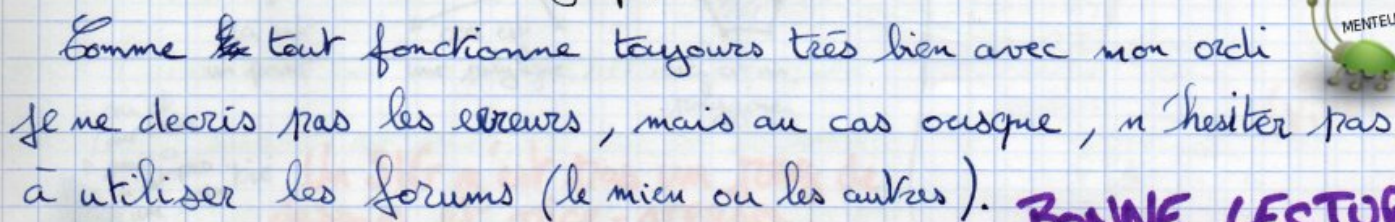 MENTEU
Comme tout fonctionne toujours très bien avec mon ordi
je ne decris pas les erreurs, mais au cas ousque, n'hesiter pas
à utiliser les forums (le mien ou les autres).
BONNE LESTUR